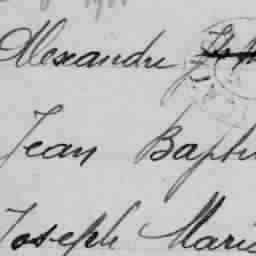 Alexandre
Jean Baptis
Joseph Marie